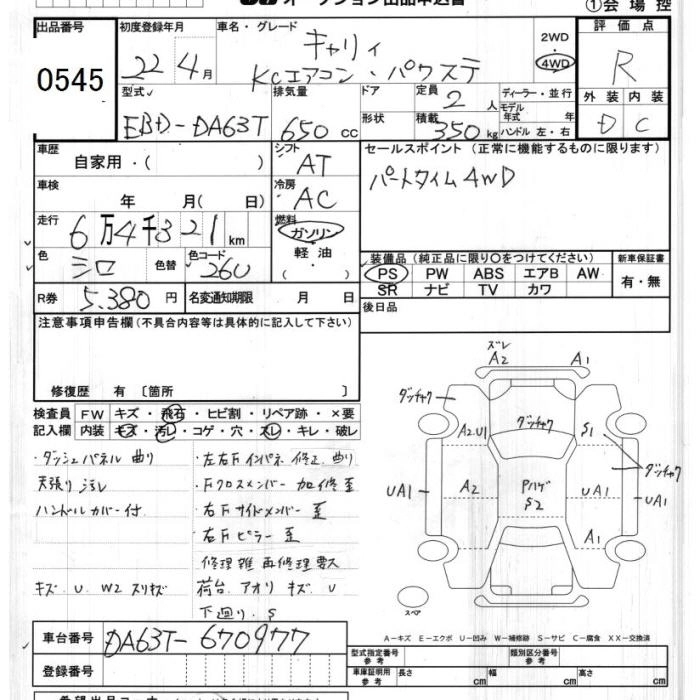 オークション出品申込書 ①会場控
出品番号 初度登録年月 車名・グレード 2WD 評価点
0545 22年4月 キャリィ 4WD R
KCエアコン・パワステ
型式 排気量 ドア 定員 2人 ディーラー・並行 外装 内装
モデル年式 年
EBD-DA63T 650cc 形状 積載 350kg ハンドル 左・右 D C
車歴 シフト セールスポイント (正常に機能するものに限ります)
自家用・( ) AT パートタイム4WD
車検 冷房
年 月(日) AC
走行 燃料
6万4千321km ガソリン
色 色替 色コード 軽油 装備品 (純正品に限り○をつけてください) 新車保証書
シロ 26U ( ) PS PW ABS エアB AW 有・無
SR ナビ TV カワ
R券 5,380円 名変通知期限 月 日 後日品
注意事項申告欄 (不具合内容等は具体的に記入して下さい)
修復歴 有 〔箇所 〕
検査員 FW キズ・飛石・ヒビ割・リペア跡・×要
記入欄 内装 キズ・汚レ・コゲ・穴・スレ・キレ・破レ
・ダッシュパネル曲り ・左右Fインパネ修正、曲り
天張り汚レ ・Fクロスメンバー 加修歪
ハンドルカバー付 ・右Fサイドメンバー 歪
・右Fピラー 歪
修理雑 再修理要大
キズ U W2 スリキズ 荷台、アオリ キズ U
下廻り S
ズレ
A2 A1
ダッチャク
ダッチャク
A2.U1 S1
ダッチャク
UA1 A2 Pハゲ S2 UA1 UA1
A1
スペア
A-キズ E-エクボ U-凹み W-補修跡 S-サビ C-腐食 XX-交換済
車台番号 DA63T-670977
型式指定番号 参考 類別区分番号 参考
登録番号 車庫証明用 参考 長さ cm 幅 cm 高さ cm